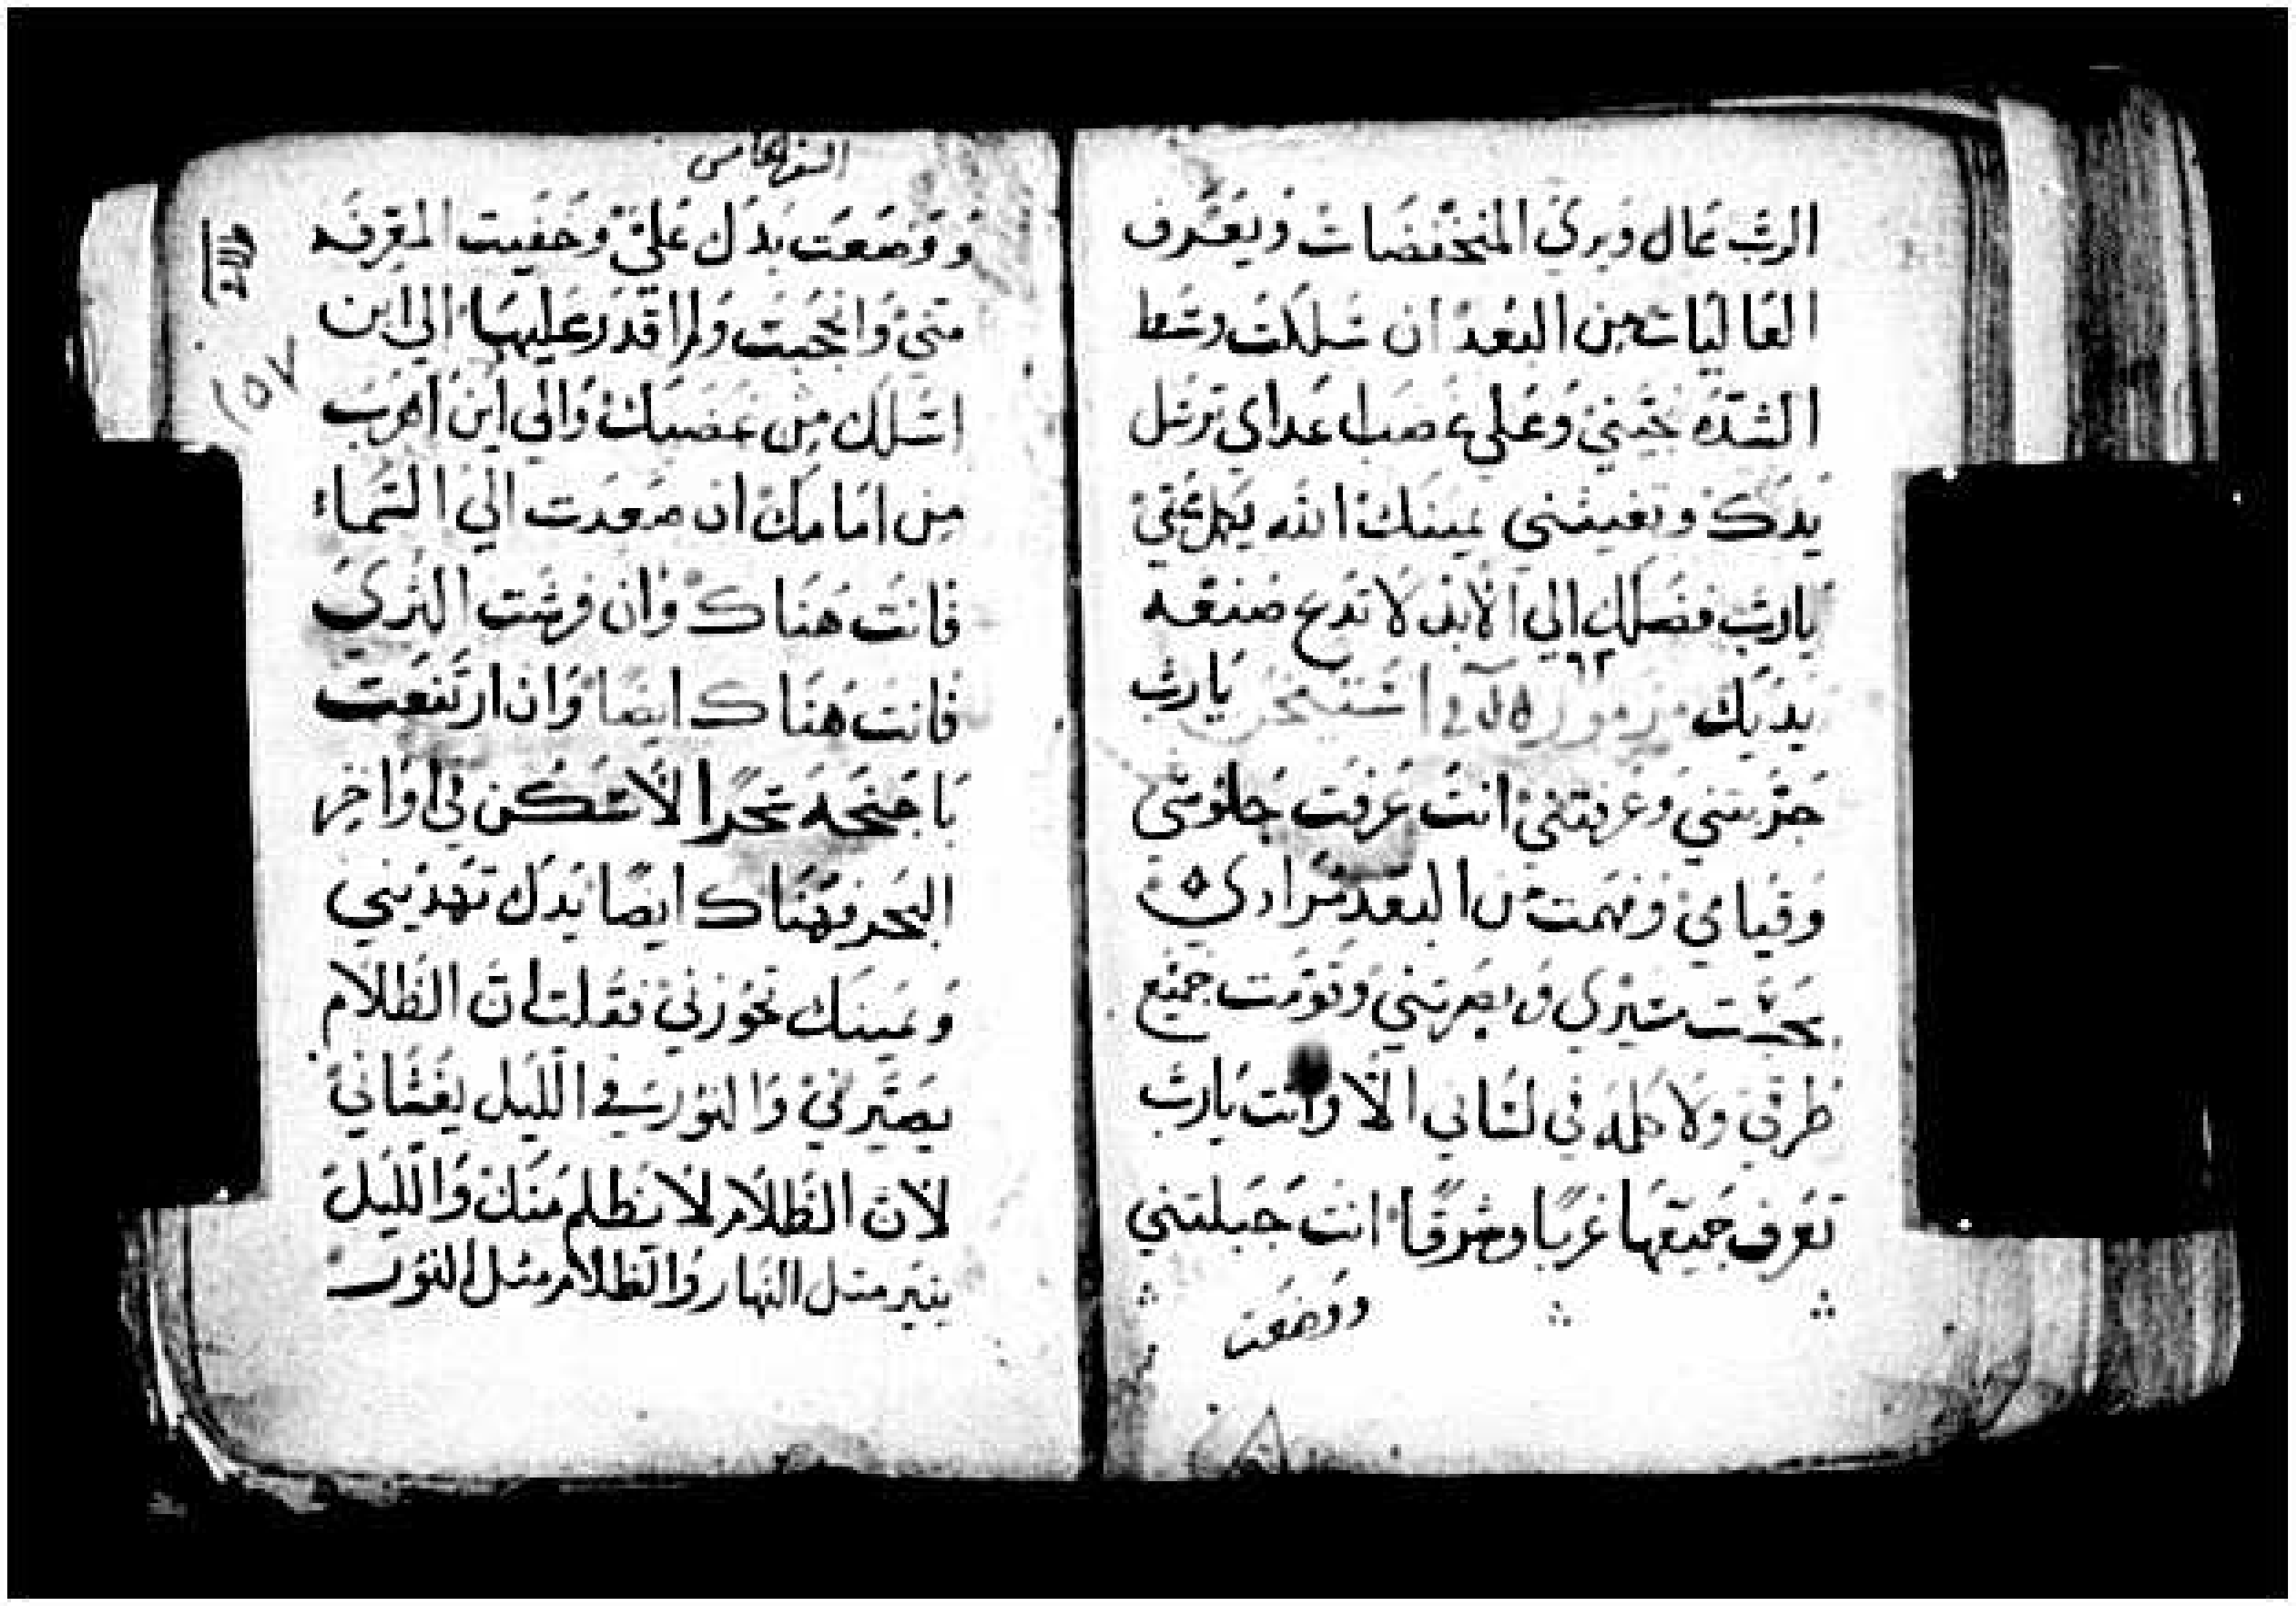 الرب عال ويري المنخفضات ويعرف
العاليات من البعد ان سلكت وسط
الشده تحييني وعلي غضب اعداي ترسل
يدك وتغيثني يمينك الله يكمل عني
يارب فضلك الي الابد لا تدع صنعة
يديك مزمور استخبر يارب
جربتني وعرفتني انت عرفت جلوسي
وقيامي وفهمت من البعد مرادي
بحثت سيري وبصرتني وقومت جميع
طرقي ولا كلمه في لساني الا وانت يارب
تعرف جميعها غربا وشرقا انت جبلتني
ووضعت
ووضعت يدك علي وخفيت المعرفه
مني وانحجبت ولم اقدر عليها الي اين
اسلك من غضبك والي اين اهرب
من امامك ان صعدت الي السماء
فانت هناك وان فرشت الثري
فانت هناك ايضا وان ارتفعت
باجنحه سحرا لاسكن في اواخر
البحر فهناك ايضا يدك تهديني
ويمينك تحوزني فقلت ان الظلام
يصيرني والنور في الليل يغشاني
لان الظلام لا يظلم منك والليل
ينير مثل النهار والظلام مثل النور